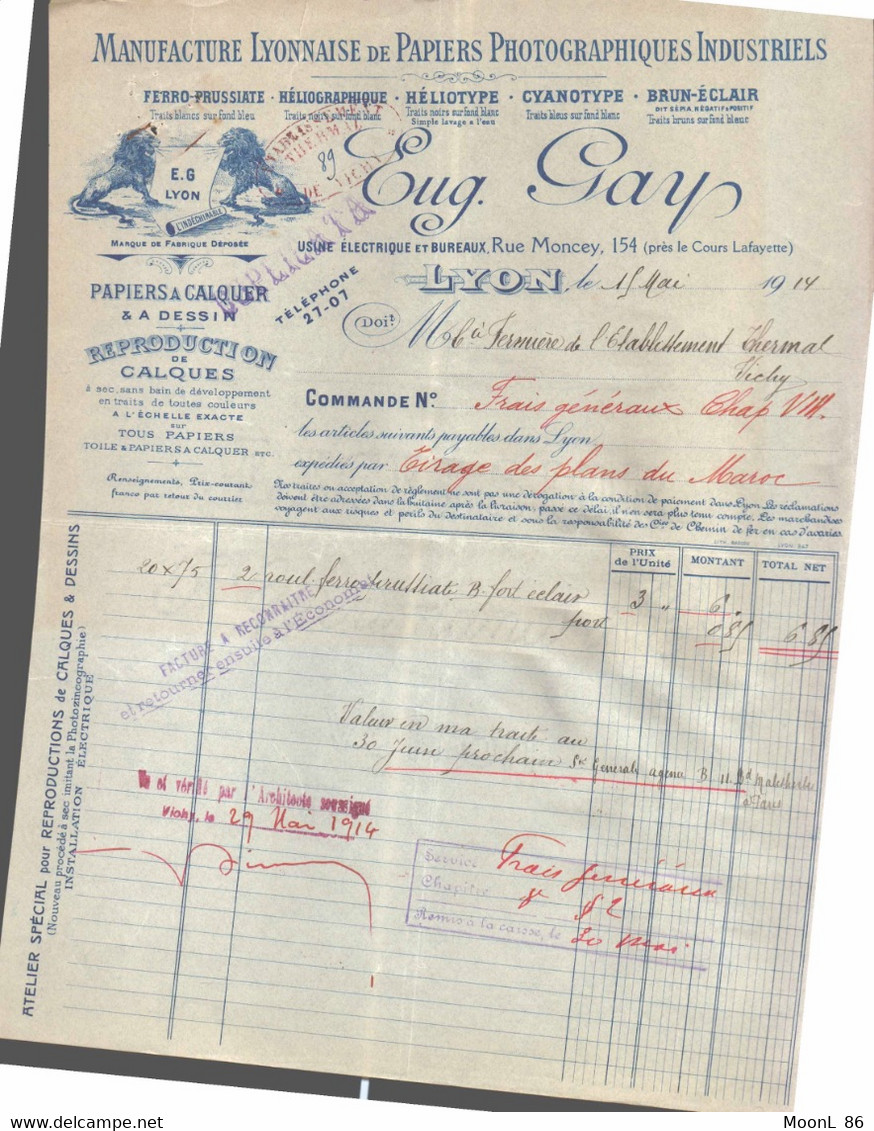 MANUFACTURE LYONNAISE DE PAPIERS PHOTOGRAPHIQUES INDUSTRIELS
FERRO-PRUSSIATE · HÉLIOGRAPHIQUE · HÉLIOTYPE · CYANOTYPE · BRUN-ÉCLAIR
Traits blancs sur fond bleu
Traits noirs sur fond blanc
Traits noirs sur fond blanc
Simple lavage à l'eau
Traits bleus sur fond blanc
DIT SÉPIA, NÉGATIF & POSITIF
Traits bruns sur fond blanc
THERMAL
DE VICHY
89
E.G
LYON
L'INDÉCHIRABLE
MARQUE DE FABRIQUE DÉPOSÉE
Eug. Gay
DUPLICATA
USINE ÉLECTRIQUE ET BUREAUX, Rue Moncey, 154 (près le Cours Lafayette)
TÉLÉPHONE
27-07
LYON, le 15 Mai 1914
PAPIERS A CALQUER
& A DESSIN
REPRODUCTION
DE
CALQUES
à sec, sans bain de développement
en traits de toutes couleurs
A L'ÉCHELLE EXACTE
sur
TOUS PAPIERS
TOILE & PAPIERS A CALQUER ETC.
Renseignements, Prix-courant
franco par retour du courrier
Doit
M Cie Fermière de l'Etablissement Thermal
Vichy
COMMANDE No. Frais généraux Chap VIII.
les articles suivants payables dans Lyon
expédiés par Tirage des plans du Maroc
Nos traites ou acceptation de règlement ne sont pas une dérogation à la condition de paiement dans Lyon. Les réclamations
doivent être adressées dans la huitaine après la livraison, passé ce délai, il n'en sera plus tenu compte. Les marchandises
voyagent aux risques et périls du destinataire et sous la responsabilité des Cies de Chemin de fer en cas d'avaries.
PRIX
de l'Unité
MONTANT
TOTAL NET
20 x 75 2 roul ferro prussiate B. fort éclair 3 " 6 "
port 0 85 6 85
FACTURE A RECONNAITRE
et retourner ensuite à l'Économat
Valeur en ma traite au
30 Juin prochain Sté Générale agence B. 11 Bd Malesherbes
à Paris
Vu et vérifié par l'Architecte soussigné
Vichy, le 29 Mai 1914
Service Frais généraux
Chapitre § 2
Remis à la caisse, le 30 mai
ATELIER SPÉCIAL pour REPRODUCTIONS de CALQUES & DESSINS
(Nouveau procédé à sec imitant la Photozincographie)
INSTALLATION ÉLECTRIQUE
MoonL 86